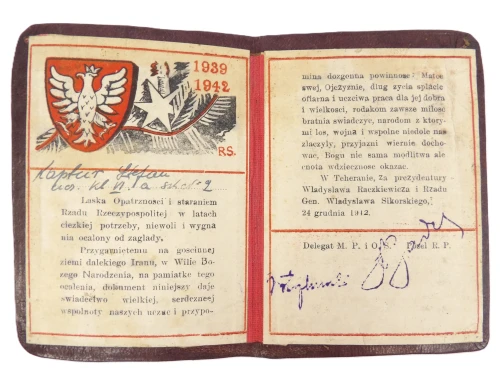 1939
1942
RS.
Kaptur Stefan
Laska Opatrzności i staraniem
Rządu Rzeczypospolitej w latach
ciezkiej potrzeby, niewoli i wygna
nia ocalony od zagłady,
Przygarnietemu na goscinnej
ziemi dalekiego Iranu, w Wilie Bo-
zego Narodzenia, na pamiatke tego
ocalenia, dokument niniejszy daje
swiadectwo wielkiej, serdecznej
wspolnoty naszych uczuc i przypo-
mina dozgonna powinnosc Matce
swej, Ojczyznie, dlug zycia splacic
ofiarna i uczciwa praca dla jej dobra
i wielkosci, rodakom zawsze milosc
bratnia swiadczyc, narodom z ktory-
mi los, wojna i wspolne niedole nas
zlaczyly, przyjazni wiernie docho-
wac, Bogu nie sama modlitwa ale
cnota wdziecznosc okazac.
W Teheranie, za prezydentury
Władysława Raczkiewicza i Rzadu
Gen. Władysława Sikorskiego,
24 grudnia 1942.
Delegat M. P. i O. S. Poseł R. P.